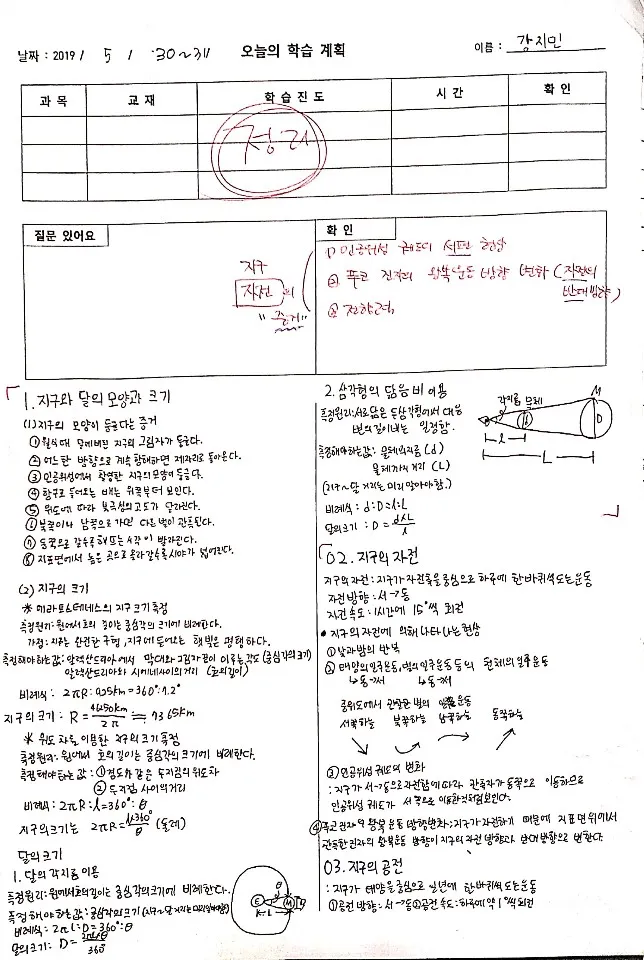 날짜 : 2019 / 5 / 30~31
오늘의 학습 계획
이름 : 강지민
과 목
교 재
학 습 진 도
시 간
확 인
정리
질문 있어요
지구
자전의
"증거"
확 인
① 인공위성 궤도의 서편 현상
② 푸코 진자의 왕복운동 방향 변화 (자전의
반대방향)
③ 전향력
1. 지구와 달의 모양과 크기
(1) 지구의 모양이 둥글다는 증거
① 월식 때 달에 비친 지구의 그림자가 둥글다.
② 어느 한 방향으로 계속 항해하면 제자리로 돌아온다.
③ 인공위성에서 촬영한 지구의 모양이 둥글다.
④ 항구로 들어오는 배는 위쪽부터 보인다.
⑤ 위도에 따라 북극성의 고도가 달라진다.
⑥ 북쪽이나 남쪽으로 가면 다른 별이 관측된다.
⑦ 동쪽으로 갈수록 해 뜨는 시각이 빨라진다.
⑧ 지표면에서 높은 곳으로 올라갈수록 시야가 넓어진다.
(2) 지구의 크기
* 에라토스테네스의 지구 크기 측정
측정원리: 원에서 호의 길이는 중심각의 크기에 비례한다.
가정: 지구는 완전한 구형, 지구에 들어오는 햇빛은 평행하다.
측정해야하는 값: 알렉산드리아에서 막대와 그림자 끝이 이루는 각도 (중심각의 크기)
알렉산드리아와 시에네 사이의 거리 (호의 길이)
비례식: 2πR : 925km = 360° : 7.2°
지구의 크기: R = 46250km / 2π ≒ 7365km
* 위도 차를 이용한 지구의 크기 측정
측정원리: 원에서 호의 길이는 중심각의 크기에 비례한다.
측정해야 하는 값: ① 경도가 같은 두 지점의 위도차
② 두 지점 사이의 거리
비례식: 2πR : l = 360° : θ
지구의 크기는 2πR = l×360° / θ (둘레)
달의 크기
1. 달의 각지름 이용
측정원리: 원에서 호의 길이는 중심각의 크기에 비례한다.
측정해야 하는 값: 중심각의 크기 (지구~달 거리는 미리 알아야 함)
비례식: 2πl : D = 360° : θ
달의 크기: D = 2πlθ / 360°
θ
E
M
D
2. 삼각형의 닮음비 이용
측정원리: 서로 닮은 두 삼각형에서 대응
변의 길이비는 일정함.
측정해야하는 값: 물체의 지름 (d)
물체까지 거리 (l)
(지구~달 거리는 미리 알아야 함.)
비례식: d : D = l : L
달의 크기: D = d×L / l
각지름
물체
M
d
D
l
L
02. 지구의 자전
지구의 자전: 지구가 자전축을 중심으로 하루에 한 바퀴씩 도는 운동
자전 방향: 서→동
자전 속도: 1시간에 15°씩 회전
• 지구의 자전에 의해 나타나는 현상
① 낮과 밤의 반복
② 태양의 일주운동, 별의 일주운동 등의 천체의 일주운동
↳동→서 ↳동→서
중위도에서 관찰한 별의 일주운동
서쪽하늘 북쪽하늘 남쪽하늘 동쪽하늘
③ 인공위성 궤도의 변화
: 지구가 서→동으로 자전함에 따라 관측자가 동쪽으로 이동하므로
인공위성 궤도가 서쪽으로 이동한 것처럼 보인다.
④ 푸코 진자의 왕복 운동 방향변화: 지구가 자전하기 때문에 지표면 위에서
관측한 진자의 왕복운동 방향이 지구의 자전 방향과 반대 방향으로 변한다.
03. 지구의 공전
: 지구가 태양을 중심으로 일년에 한 바퀴씩 도는 운동
① 공전 방향: 서→동 ② 공전 속도: 하루에 약 1°씩 회전